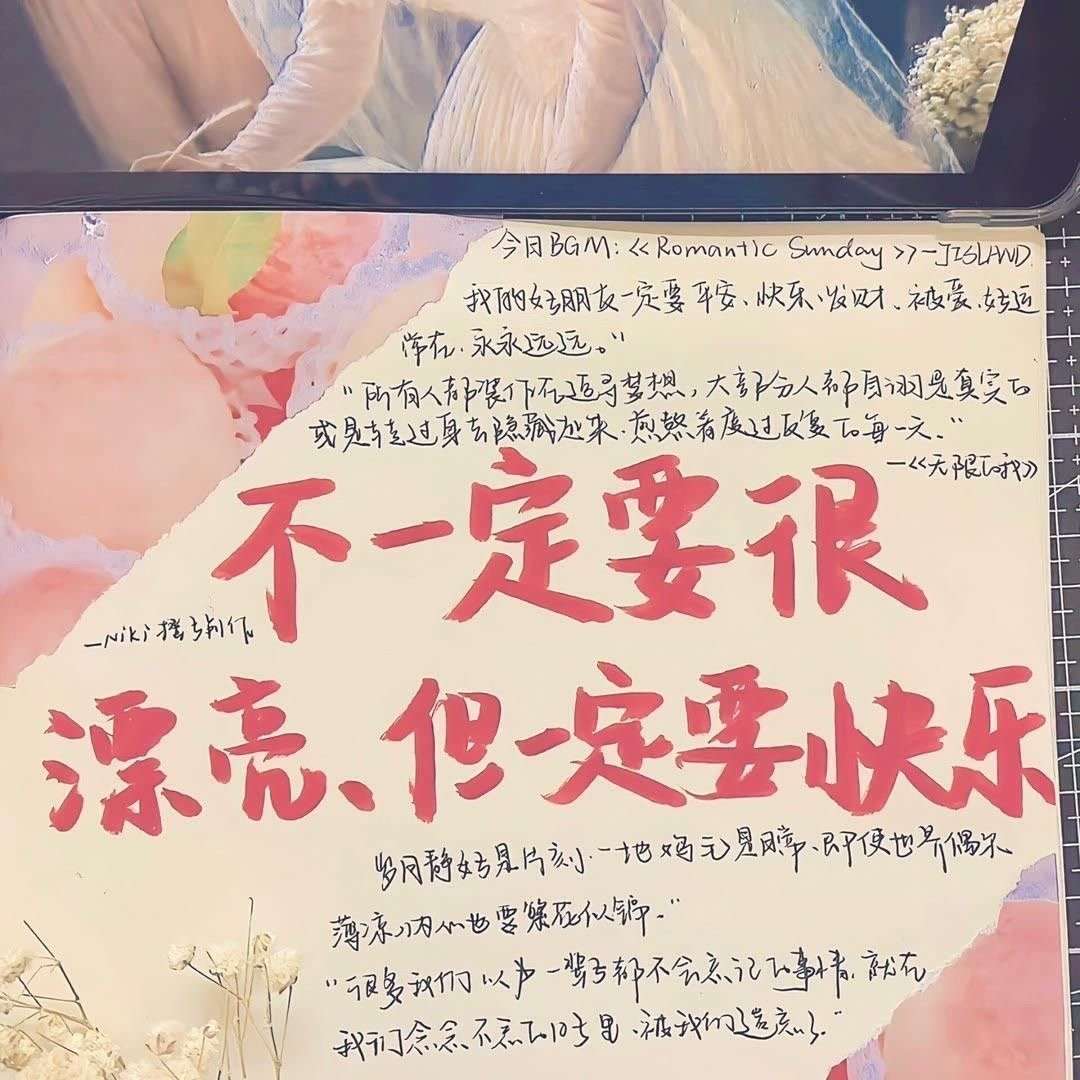 今日BGM:《Romantic Sunday》—JISLAND.
我的好朋友一定要平安、快乐、发财、被爱、好运
常在、永永远远。"
"所有人都装作在追寻梦想，大部分人都自诩是真实的
或是转过身去隐藏起来、煎熬着度过反复的每一天。"
—《无限的我》
不一定要很
—Niki 播与制作
漂亮、但一定要快乐
岁月静好是片刻、一地鸡毛是日常、即使世界偶尔
薄凉、内心也要繁花似锦。"
"很多我们以为一辈子都不会忘记的事情、就在
我们念念不忘的日子里、被我们遗忘了。"